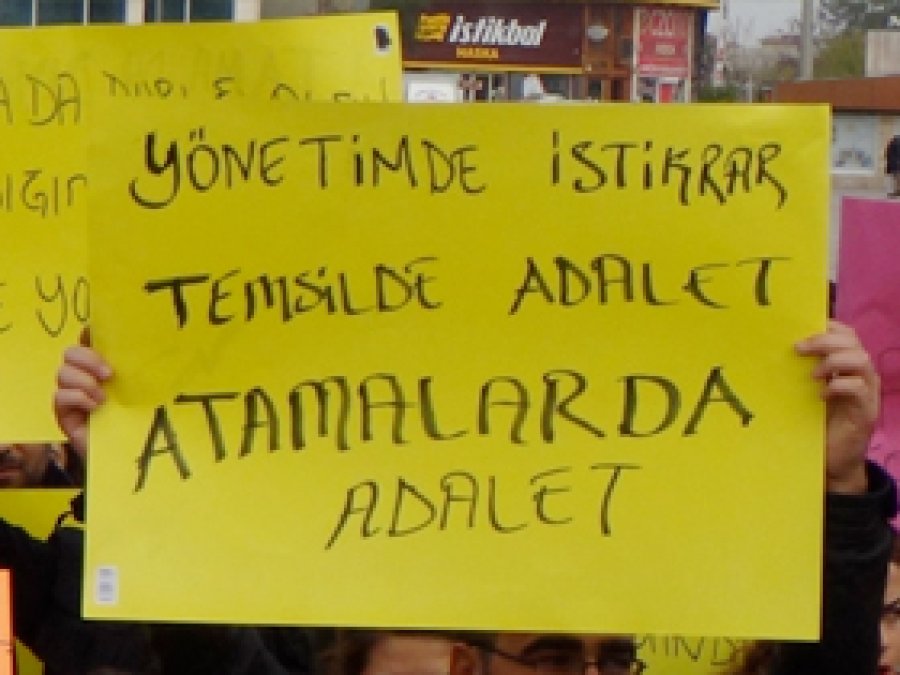 istikbal
YÖNETİMDE İSTİKRAR
TEMSİLDE ADALET
ATAMALARDA
ADALET